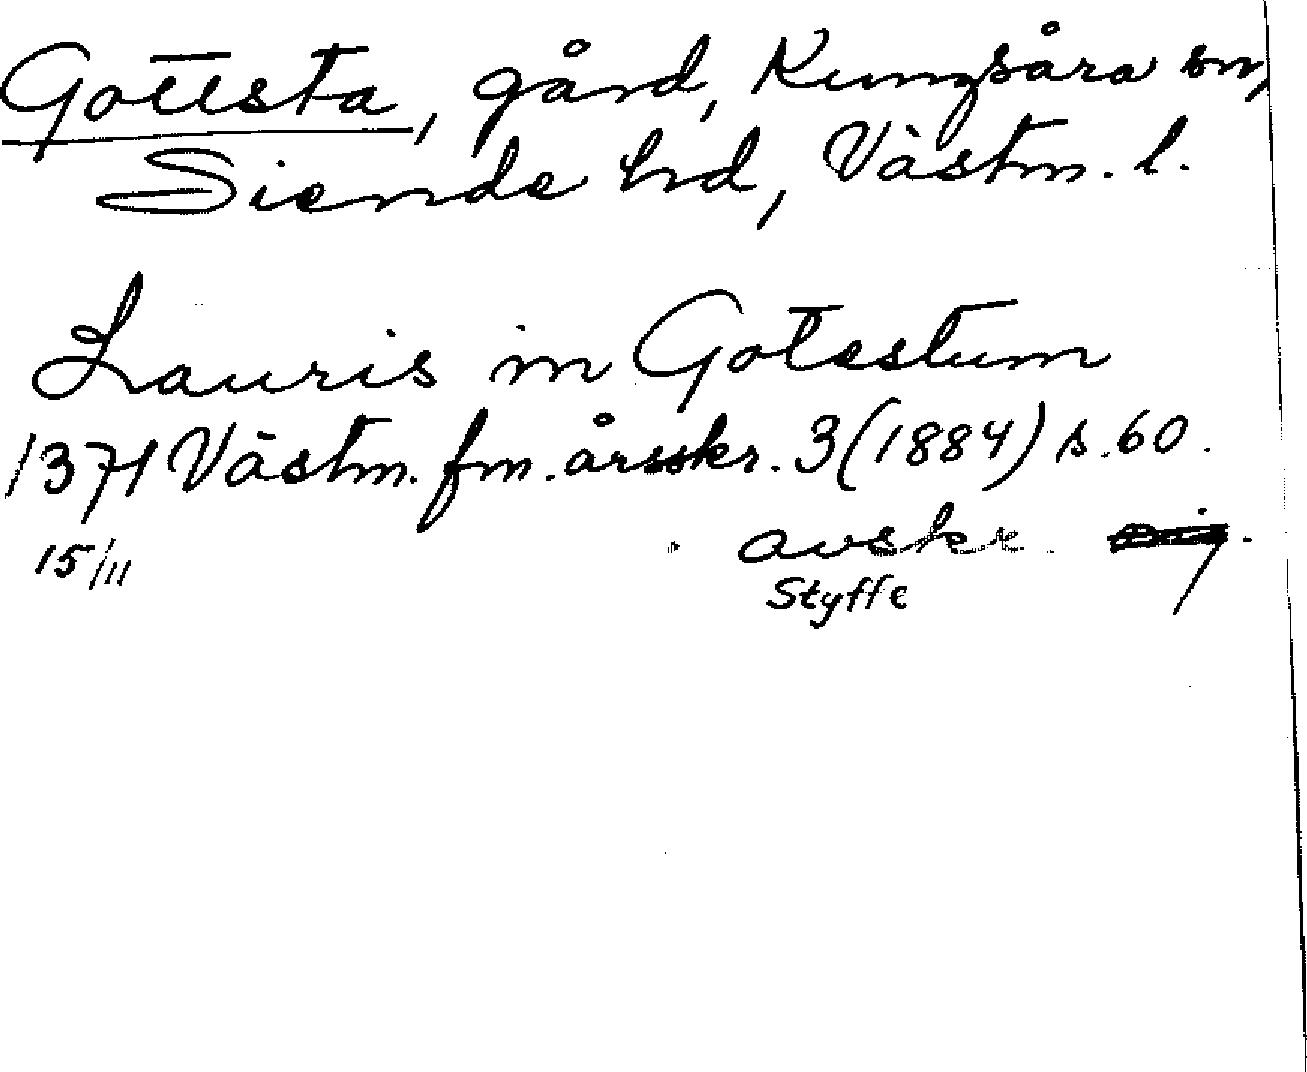 Gottsta, gård, Kungsåra sn,
Siende hd, Västm. l.
Lauris in Gotestum
1371 Västm. fm. årsskr. 3 (1884) s. 60.
15/11 avskr.
Styffe